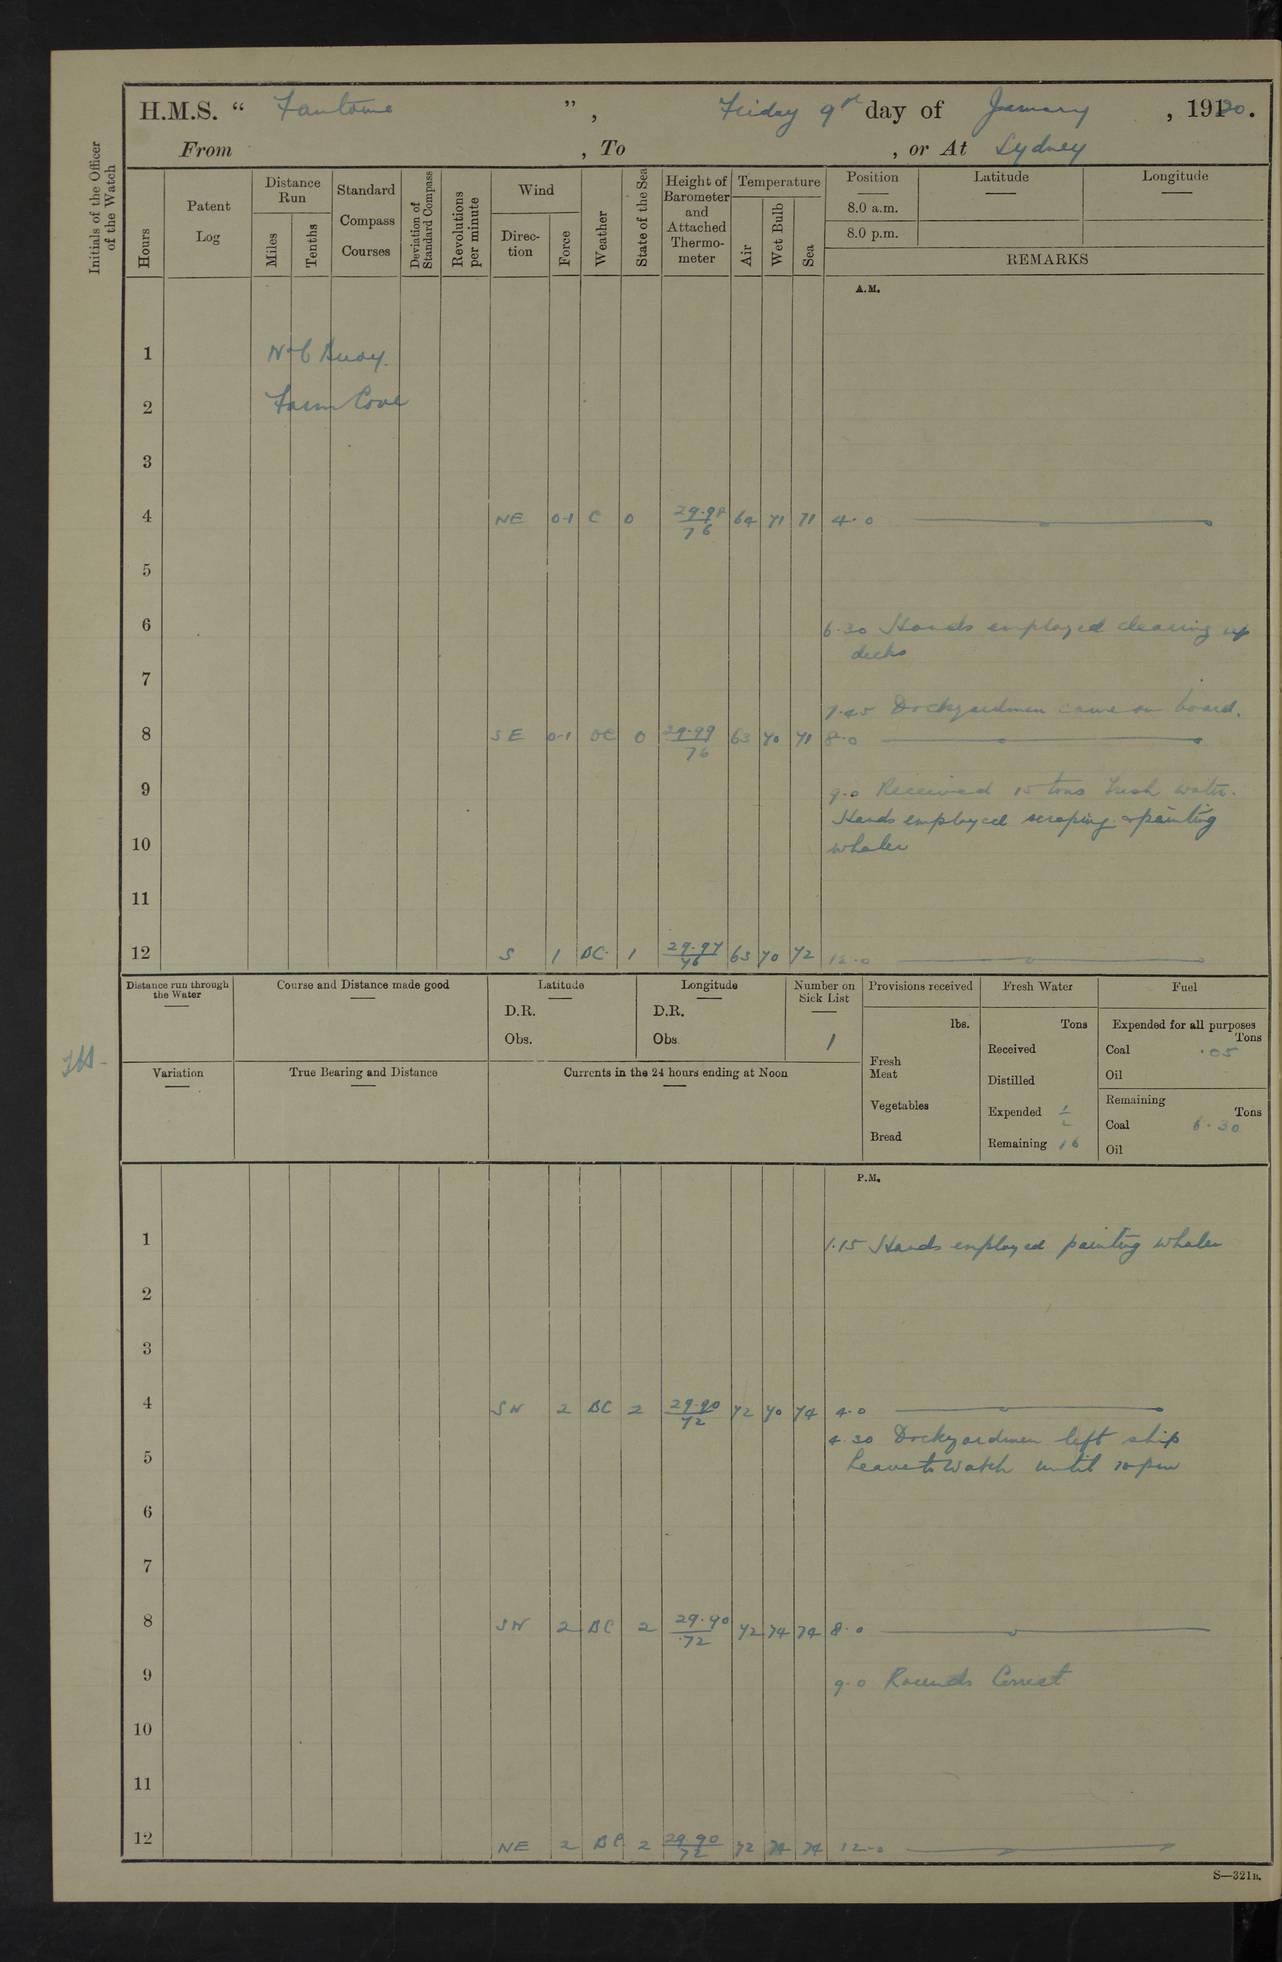 H.M.S. “ Fantome ”, Friday 9th day of January, 1920.
From , To , or At Sydney
Initials of the Officer of the Watch
Hours
Patent Log
Distance Run
Miles
Tenths
Standard Compass Courses
Deviation of Standard Compass
Revolutions per minute
Wind
Direction
Force
Weather
State of the Sea
Height of Barometer and Attached Thermometer
Temperature
Air
Wet Bulb
Sea
Position
Latitude
Longitude
8.0 a.m.
8.0 p.m.
REMARKS
A.M.
1 No 6 Buoy.
2 Farm Cove
3
4 NE 0-1 C 0 29.98/76 64 71 71 4.0
5
6 6.30 Hands employed cleaning up
decks
7
7.45 Dockyardmen came on board.
8 SE 0-1 OC 0 29.99/76 63 70 71 8.0
9 9.0 Received 15 tons fresh water.
Hands employed scraping & painting
10 whaler
11
12 S 1 BC. 1 29.97/76 63 70 72 12.0
Distance run through the Water
Course and Distance made good
Latitude
D.R.
Obs.
Longitude
D.R.
Obs.
Number on Sick List
1
Provisions received
lbs.
Fresh Meat
Vegetables
Bread
Fresh Water
Tons
Received
Distilled
Expended 1/2
Remaining 16
Fuel
Expended for all purposes
Tons
Coal .05
Oil
Remaining
Tons
Coal 6.30
Oil
Variation
True Bearing and Distance
Currents in the 24 hours ending at Noon
P.M.
1 1.15 Hands employed painting whaler
2
3
4 SW 2 BC 2 29.90/72 72 70 74 4.0
4.30 Dockyardmen left ship
5 Leave to Watch until 10 pm
6
7
8 SW 2 BC 2 29.90/72 72 74 74 8.0
9 9.0 Rounds Correct
10
11
12 NE 2 BC 2 29.90/72 72 74 74 12.0
S—321B.